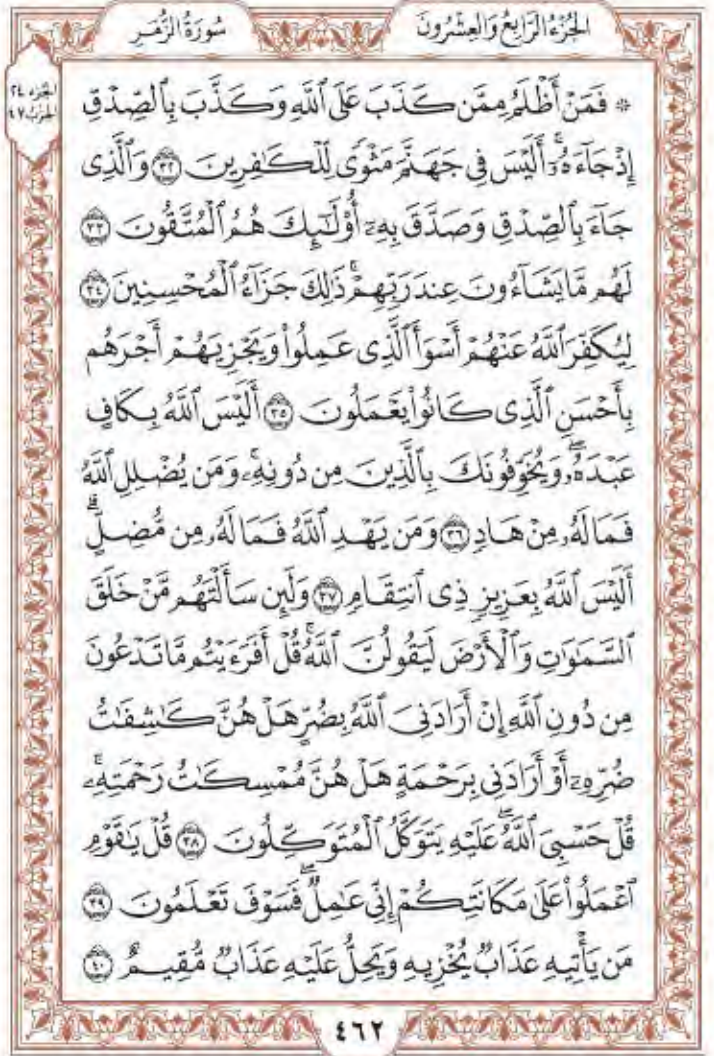 الجُزْءُ الرَّابِعُ وَالعِشْرُونَ سُورَةُ الزُّمَر
الجزء ٢٤
الحزب ٤٧
۞ فَمَنْ أَظْلَمُ مِمَّن كَذَبَ عَلَى ٱللَّهِ وَكَذَّبَ بِٱلصِّدْقِ
إِذْ جَآءَهُۥٓۚ أَلَيْسَ فِى جَهَنَّمَ مَثْوًى لِّلْكَٰفِرِينَ ٣٢ وَٱلَّذِى
جَآءَ بِٱلصِّدْقِ وَصَدَّقَ بِهِۦٓ أُو۟لَٰٓئِكَ هُمُ ٱلْمُتَّقُونَ ٣٣
لَهُم مَّا يَشَآءُونَ عِندَ رَبِّهِمْۚ ذَٰلِكَ جَزَآءُ ٱلْمُحْسِنِينَ ٣٤
لِيُكَفِّرَ ٱللَّهُ عَنْهُمْ أَسْوَأَ ٱلَّذِى عَمِلُوا۟ وَيَجْزِيَهُمْ أَجْرَهُم
بِأَحْسَنِ ٱلَّذِى كَانُوا۟ يَعْمَلُونَ ٣٥ أَلَيْسَ ٱللَّهُ بِكَافٍ
عَبْدَهُۥۖ وَيُخَوِّفُونَكَ بِٱلَّذِينَ مِن دُونِهِۦۚ وَمَن يُضْلِلِ ٱللَّهُ
فَمَا لَهُۥ مِنْ هَادٍ ٣٦ وَمَن يَهْدِ ٱللَّهُ فَمَا لَهُۥ مِن مُّضِلٍّۗ
أَلَيْسَ ٱللَّهُ بِعَزِيزٍ ذِى ٱنتِقَامٍ ٣٧ وَلَئِن سَأَلْتَهُم مَّنْ خَلَقَ
ٱلسَّمَٰوَٰتِ وَٱلْأَرْضَ لَيَقُولُنَّ ٱللَّهُۚ قُلْ أَفَرَءَيْتُم مَّا تَدْعُونَ
مِن دُونِ ٱللَّهِ إِنْ أَرَادَنِىَ ٱللَّهُ بِضُرٍّ هَلْ هُنَّ كَٰشِفَٰتُ
ضُرِّهِۦٓ أَوْ أَرَادَنِى بِرَحْمَةٍ هَلْ هُنَّ مُمْسِكَٰتُ رَحْمَتِهِۦۚ
قُلْ حَسْبِىَ ٱللَّهُۖ عَلَيْهِ يَتَوَكَّلُ ٱلْمُتَوَكِّلُونَ ٣٨ قُلْ يَٰقَوْمِ
ٱعْمَلُوا۟ عَلَىٰ مَكَانَتِكُمْ إِنِّى عَٰمِلٌۖ فَسَوْفَ تَعْلَمُونَ ٣٩
مَن يَأْتِيهِ عَذَابٌ يُخْزِيهِ وَيَحِلُّ عَلَيْهِ عَذَابٌ مُّقِيمٌ ٤٠
٤٦٢